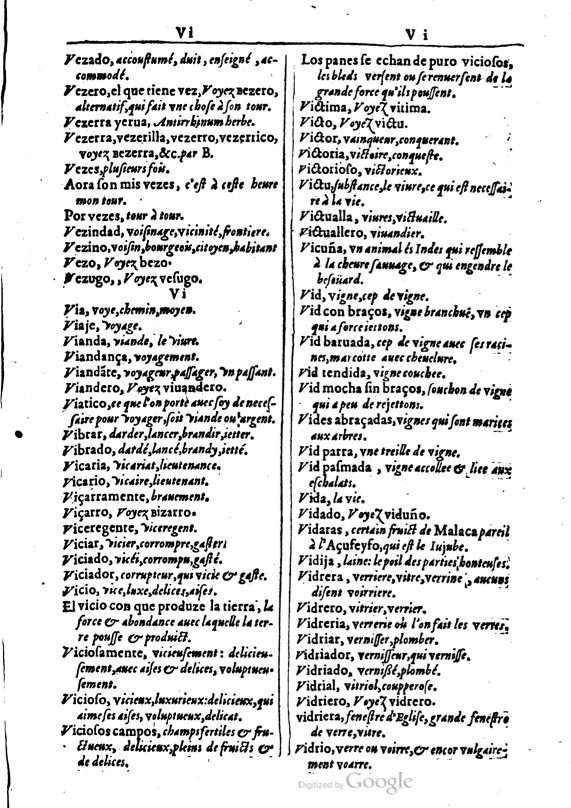 Vi
Vezado, accoustumé, duit, enseigné, ac-
commodé.
Vezero, el que tiene vez, Voyez Bezero,
alternatif, qui fait vne chose à son tour.
Vezerra yerua, Antirrhinum herbe.
Vezerra, vezerilla, vezerro, vezerrico,
voyez Bezerra, &c. par B.
Vezes, plusieurs fois.
Aora son mis vezes, c'est à ceste heure
mon tour.
Por vezes, tour à tour.
Vezindad, voisinage, vicinité, frontiere.
Vezino, voisin, bourgeois, citoyen, habitant
Vezo, Voyez bezo.
Vezugo,, Voyez vesugo.
Vi
Via, voye, chemin, moyen.
Viaje, voyage.
Vianda, viande, le viure.
Viandança, voyagement.
Viandãte, voyageur, passager, vn passant.
Viandero, Voyez viuandero.
Viatico, ce que l'on porte auec soy de neces-
saire pour voyager, soit viande ou argent.
Vibrar, darder, lancer, brandir, ietter.
Vibrado, dardé, lancé, brandy, ietté.
Vicaria, vicariat, lieutenance.
Vicario, vicaire, lieutenant.
Viçarramente, brauement.
Viçarro, Voyez Bizarro.
Viceregente, viceregent.
Viciar, vicier, corrompre, gaster.
Viciado, vicié, corrompu, gasté.
Viciador, corrupteur, qui vicie & gaste.
Vicio, vice, luxe, delices, aises.
El vicio con que produze la tierra, la
force & abondance auec laquelle la ter-
re pousse & produict.
Viciosamente, vicieusement: delicieu-
sement, auec aises & delices, voluptueu-
sement.
Vicioso, vicieux, luxurieux: delicieux, qui
aime ses aises, voluptueux, delicat.
Viciosos campos, champs fertiles & fru-
ctueux, delicieux, pleins de fruicts &
de delices.
Vi
Los panes se echan de puro viciosos,
les bleds versent ou se renuersent de la
grande force qu'ils poussent.
Victima, Voyez vitima.
Victo, Voyez victu.
Victor, vainqueur, conquerant.
Victoria, victoire, conqueste.
Victorioso, victorieux.
Victu, substance, le viure, ce qui est necessai-
re à la vie.
Victualla, viures, victuaille.
Victuallero, viuandier.
Vicuña, vn animal és Indes qui ressemble
à la cheure sauuage, & qui engendre le
besoüard.
Vid, vigne, cep de vigne.
Vid con braços, vigne branchuë, vn cep
qui a force iettons.
Vid baruada, cep de vigne auec ses raci-
nes, marcotte auec cheuelure.
Vid tendida, vigne couchee.
Vid mocha sin braços, souchon de vigne
qui a peu de rejettons.
Vides abraçadas, vignes qui sont mariees
aux arbres.
Vid parra, vne treille de vigne.
Vid pasmada, vigne accollee & liee aux
eschalats.
Vida, la vie.
Vidado, Voyez viduño.
Vidaras, certain fruict de Malaca pareil
à l'Açufeyfo, qui est le Iujube.
Vidija, laine: le poil des parties honteuses.
Vidrera, verriere, vitre, verrine, aucuns
disent voirriere.
Vidrero, vitrier, verrier.
Vidreria, verrerie où l'on fait les verres.
Vidriar, vernisser, plomber.
Vidriador, vernisseur, qui vernisse.
Vidriado, vernissé, plombé.
Vidrial, vitriol, coupperose.
Vidriero, Voyez vidrero.
vidriera, fenestre d'Eglise, grande fenestre
de verre, vitre.
Vidrio, verre ou voirre, & encor vulgaire-
ment voarre.
Digitized by Google